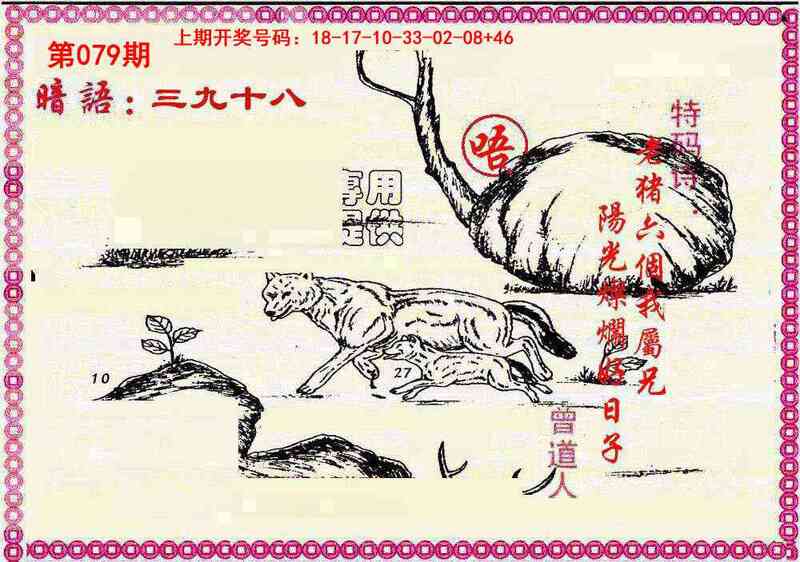 上期开奖号码：18-17-10-33-02-08+46
第079期
暗語：三九十八
唔
特码诗：
老猪六個我屬兄
陽光燦爛好日子
用
供
10
27
曾道人